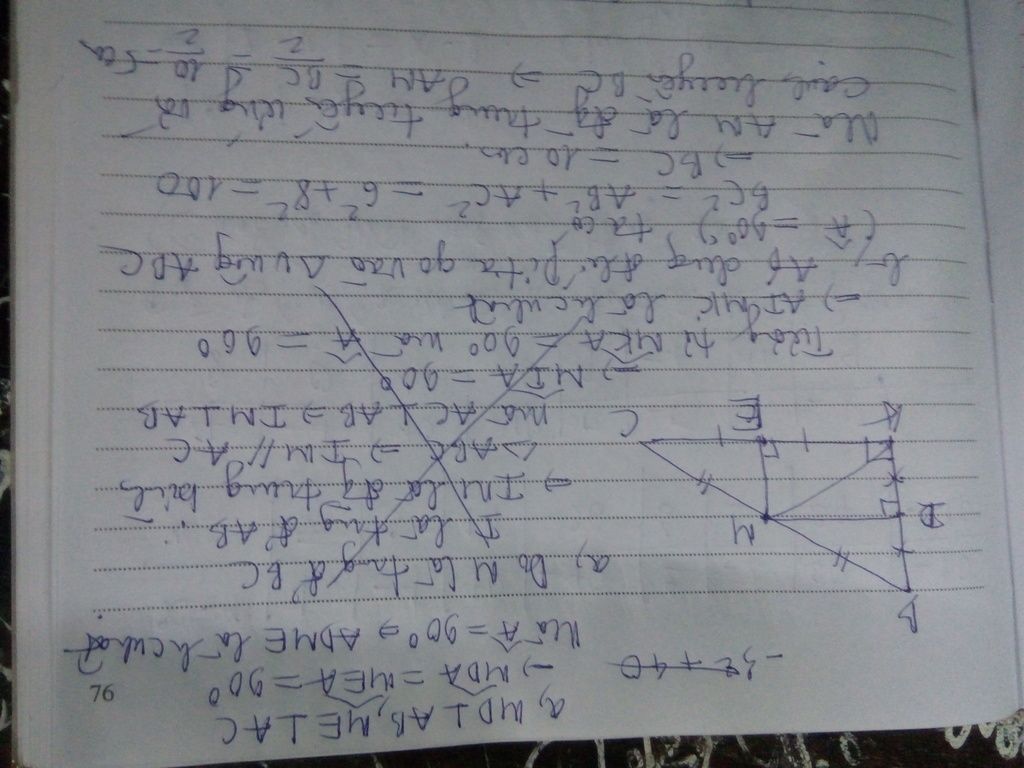 76
a, MD⊥AB, ME⊥AC
⇒ MDA = MEA = 90°
Mà Â = 90° ⇒ ADME là hcn
-32 + 40
B
D
A
M
E
C
a, Do M là trung đ' BC
I là trung đ' AB
⇒ IM là đg trung bình
△ABC ⇒ IM // AC
mà AC ⊥ AB ⇒ IM ⊥ AB
⇒ MIA = 90°
Tương tự MKA = 90° mà Â = 90°
⇒ AIMK là hcnhật
b, Áp dụng đlí Pitago vào △ vuông ABC
(Â = 90°) ta có
BC² = AB² + AC² = 6² + 8² = 100
⇒ BC = 10 cm
Mà AM là đg trung tuyến ứng với
cạnh huyền BC ⇒ AM = BC/2 = 10/2 = 5cm